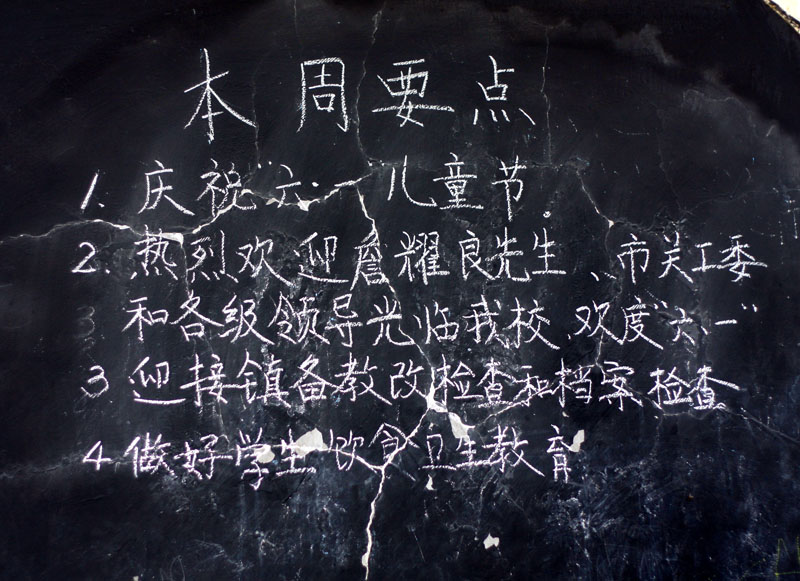 本周要点
1. 庆祝"六·一"儿童节。
2. 热烈欢迎詹耀良先生、市关工委
和各级领导光临我校、欢度"六·一"
3 迎接镇备教改检查和档案检查
4 做好学生饮食卫生教育